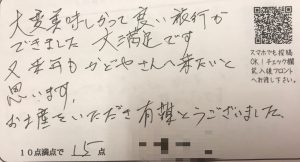 大変美味しかって良い旅行が
できました 大満足です
又来年もかどやさんへ来たいと
思います。
お土産をいただき有難とうございました。
スマホでも投稿
OK！チェック欄
記入後フロント
へお渡し下さい。
10点満点で 15 点